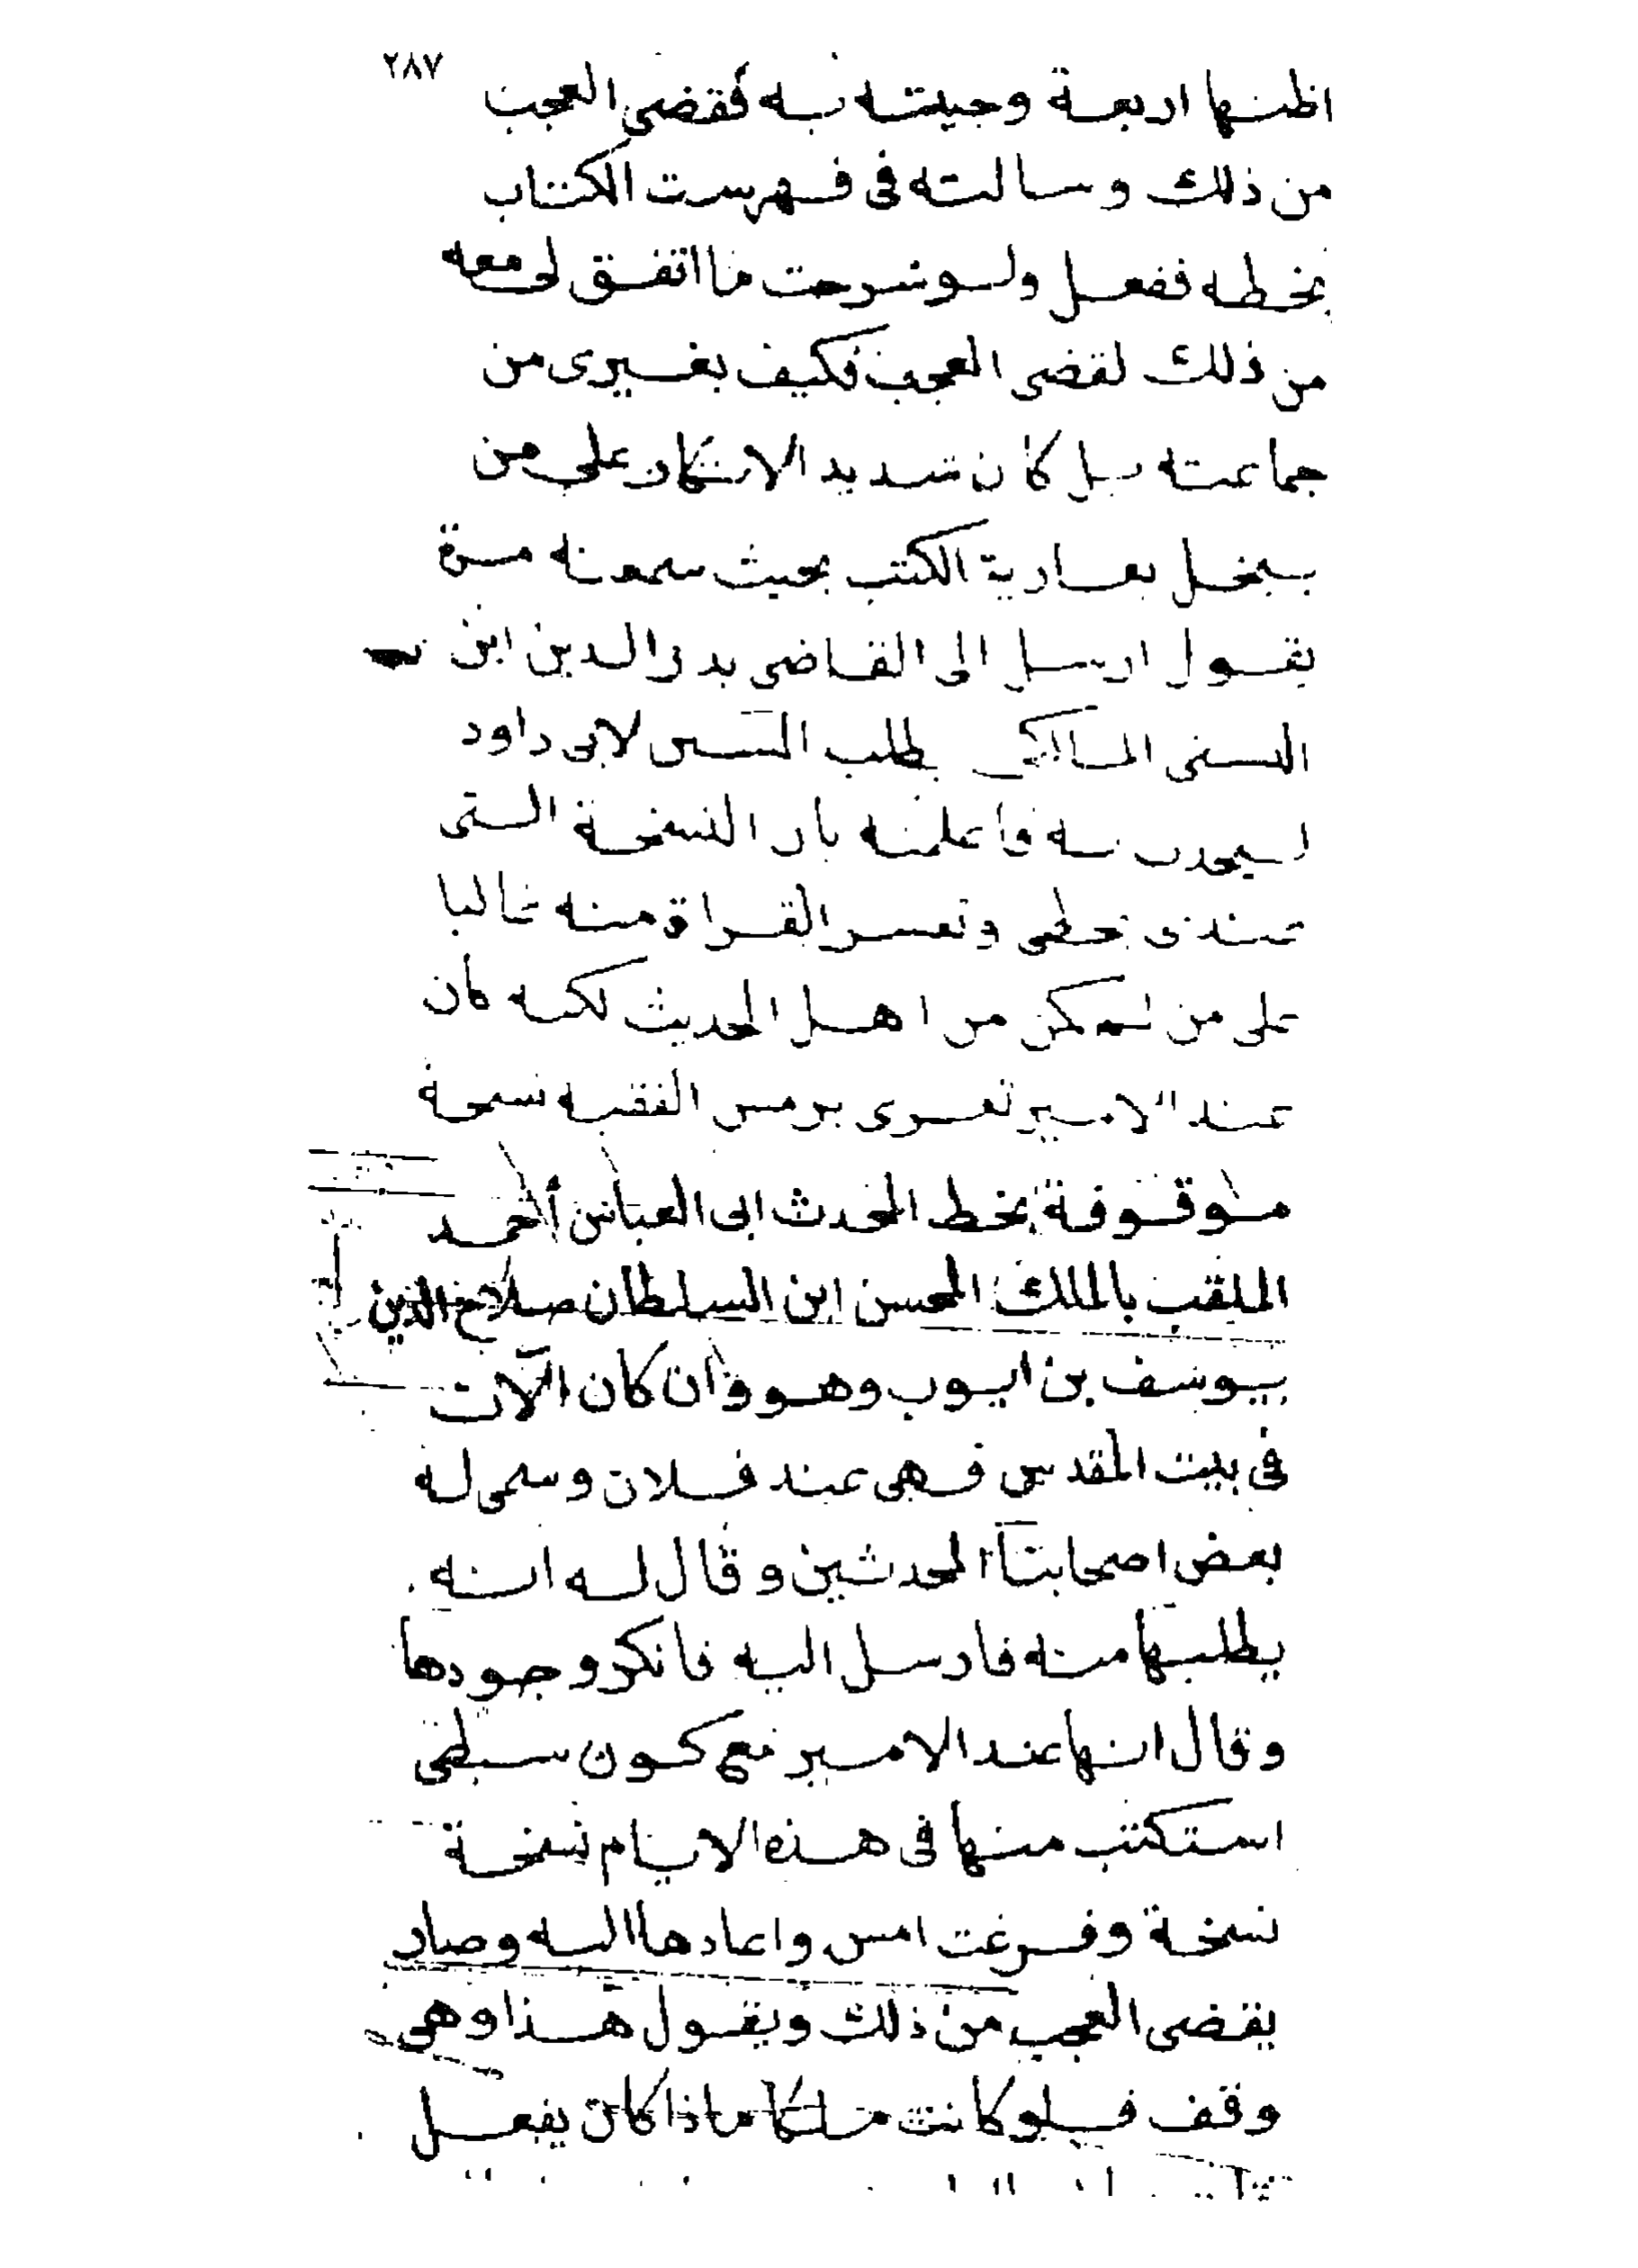 ٢٨٧
اظنها اربعة وجيئته به فقضى العجب
من ذلك وسالته فى فهرست الكتاب
بخطه ففعل ولو شرحت ما اتفق لى معه
من ذلك لقضى العجب فكيف بغيرى من
جماعته بل كان شديد الانكار على من
يبخل بعارية الكتب بحيث سمعته مرة
يقول ارسل الى القاضى بدر الدين ابن
التنسى المالكى يطلب السنن لابى داود
فاعلمته بان النسخة التى
عندى بخطى وتعسر القراة منه غالبا
على من لم يكن من اهل الحديث لكنه كان
عند الامير تغرى برمس الفقيه نسخة
موقوفة بخط المحدث ابى العباس أحمد
الملقب بالملك المحسن ابن السلطان صلاح الدين
يوسف بن ايوب وهو وان كان الآن
فى بيت المقدس فهى عند فلان وسمى له
بعض اصحابنا المحدثين وقال له انه
يطلبها منه فارسل اليه فانكر وجودها
وقال انها عند الامير مع كون سبطى
استكتب منها فى هذه الايام نسخة
نسخة وفرغت امس واعادها اليه وصار
يقضى العجب من ذلك ويقول هذا وهى
وقف فلو كانت ملكا ماذا كان يفعل